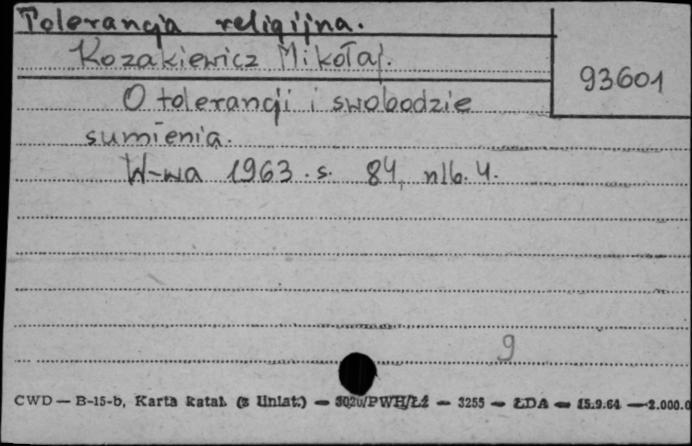 Tolerancja religijna.
Kozakiewicz Mikołaj.
93601
O tolerancji i swobodzie
sumienia.
W-wa 1963. s. 84, nlb. 4.
9
CWD — B-15-b, Karta katal. (z Uniat.) — PWH/Łż — 3255 — ŁDA — 15.9.64 — 2.000.0